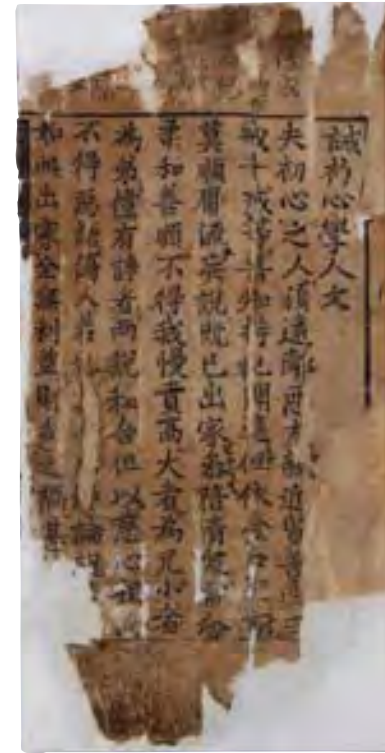 誡初心學人文
夫初心之人須遠離惡友親近賢善受五
戒十戒等善知持犯開遮但依金口聖
莫順庸流妄說既已出家參陪清衆常念
柔和善順不得我慢貢高大者為兄小者
為弟儻有諍者兩說和合但以慈心相向
不得惡語傷人若 論說
如此出家全無利益財色之禍甚